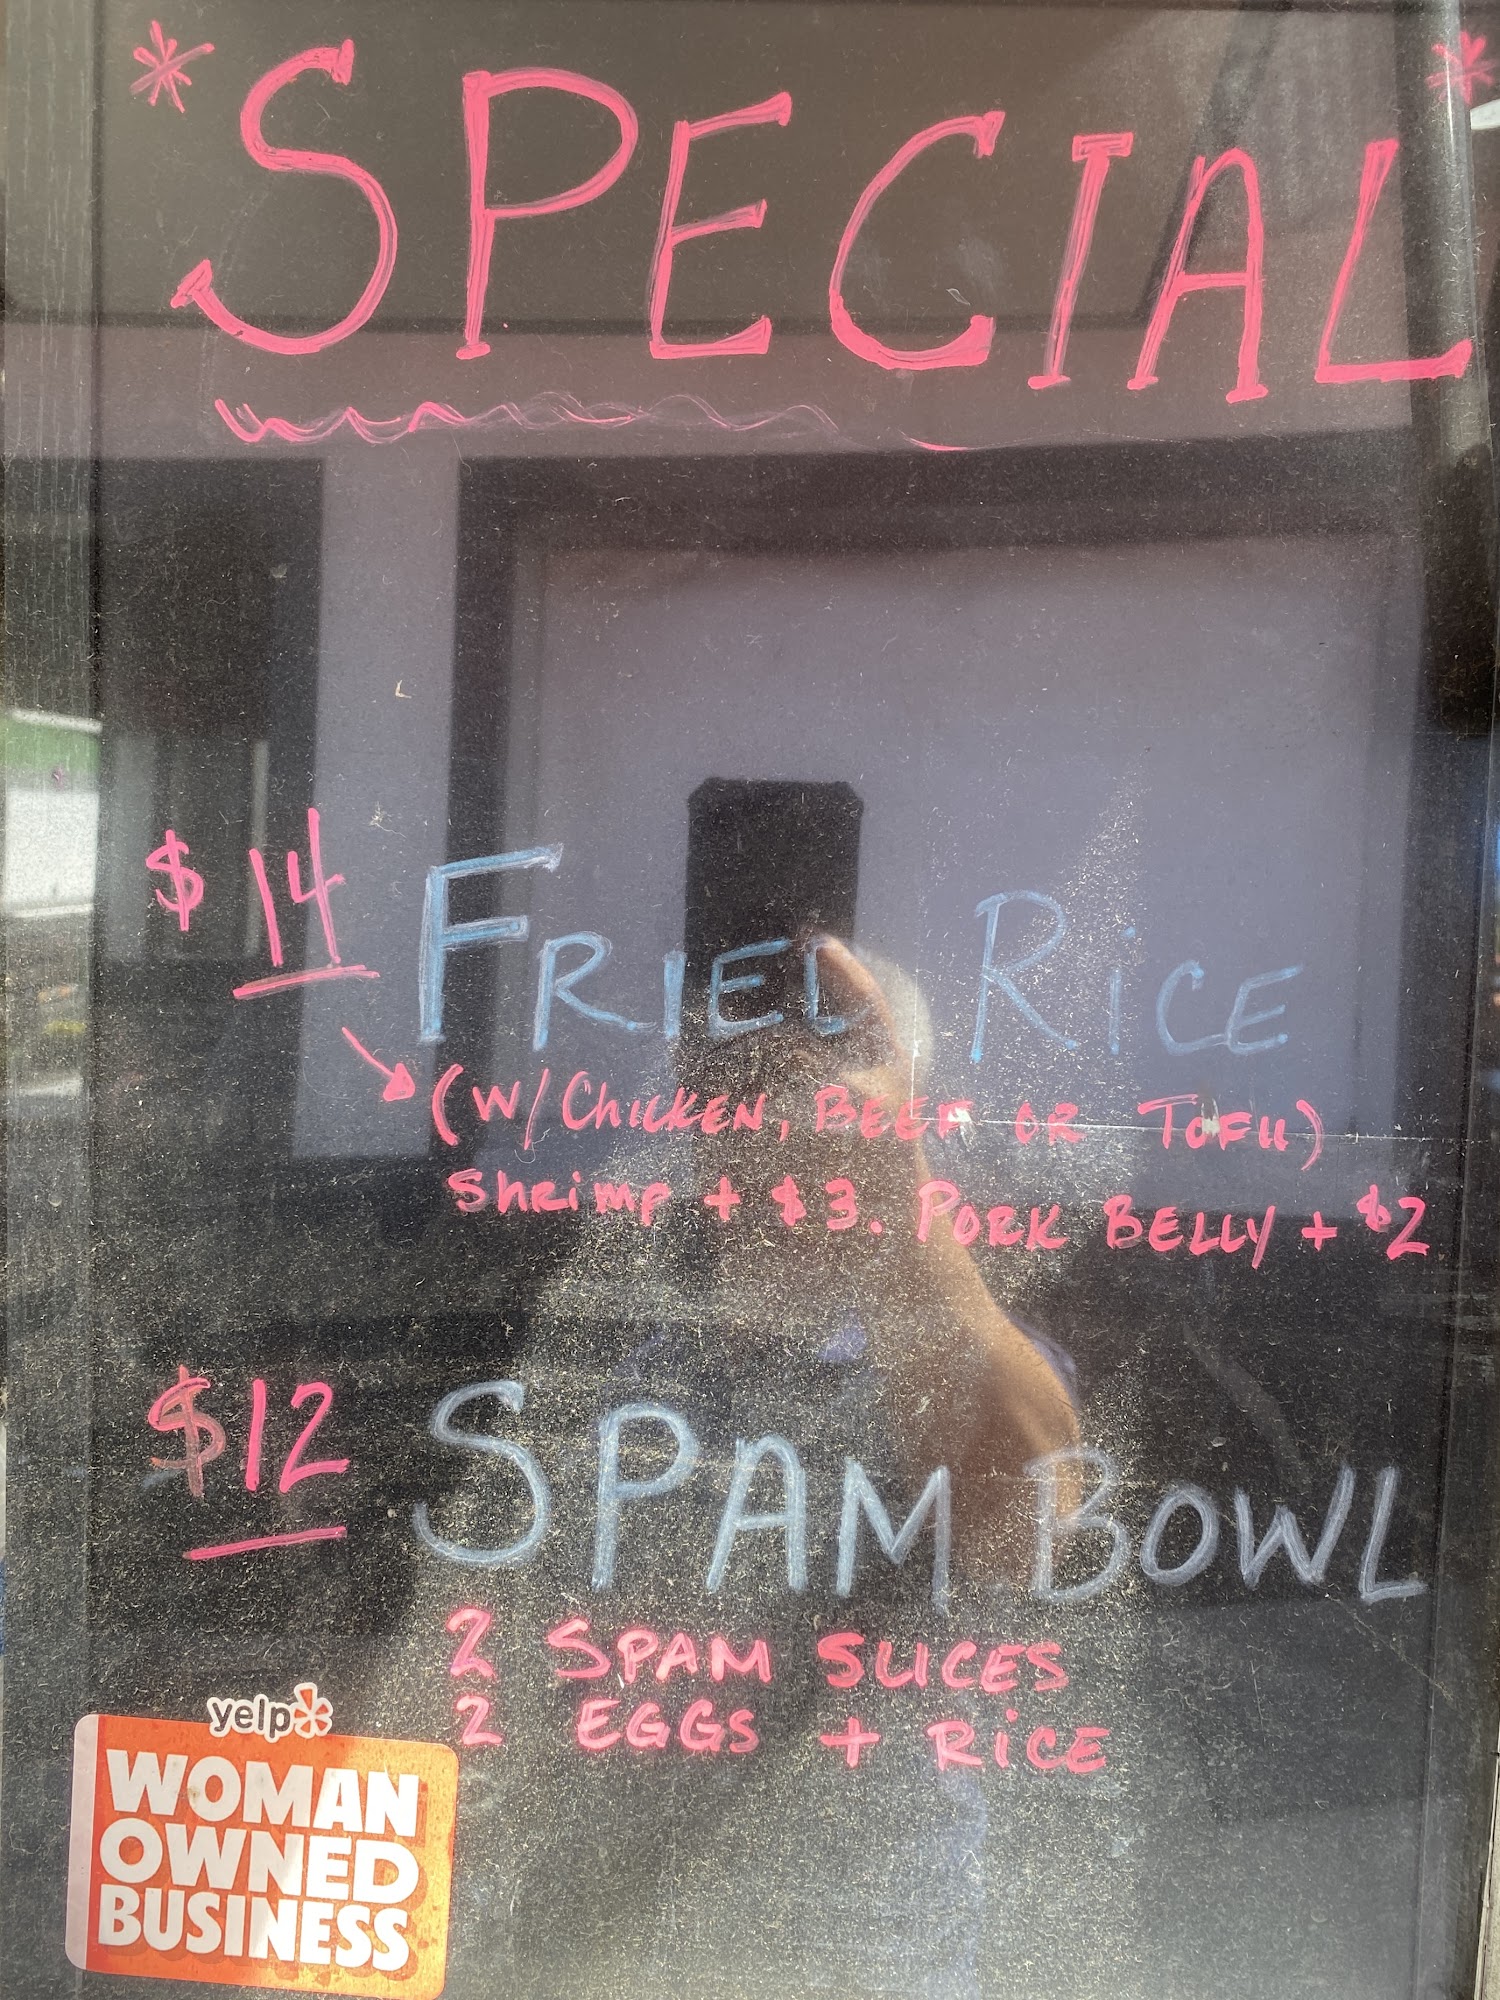 *SPECIAL*
$14 FRIED RICE
(W/ CHICKEN, BEEF OR TOFU)
Shrimp + $3. PORK BELLY + $2
$12 SPAM BOWL
2 SPAM SLICES
2 EGGS + RICE
yelp
WOMAN
OWNED
BUSINESS